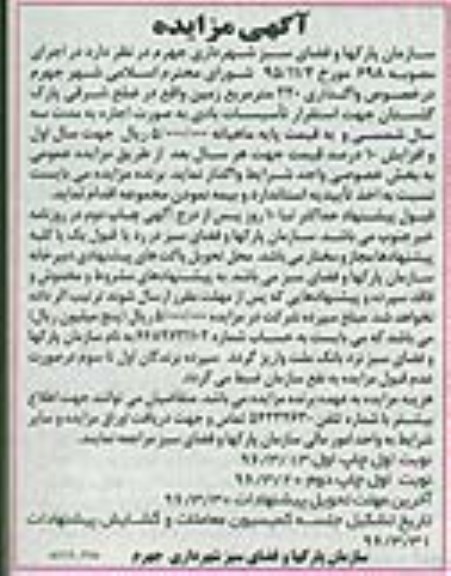 آگهی مزایده
سازمان پارکها و فضای سبز شهرداری جهرم در نظر دارد در اجرای
مصوبه ۶۹۸ مورخ ۹۵/۱۱/۴ شورای محترم اسلامی شهر جهرم
در خصوص واگذاری ۲۲۰ مترمربع زمین واقع در ضلع شرقی پارک
گلستان جهت استقرار تأسیسات بادی به صورت اجاره به مدت سه
سال شمسی و به قیمت پایه ماهیانه ۵/۰۰۰/۰۰۰ ریال جهت سال اول
و افزایش ۱۰ درصد قیمت جهت هر سال بعد از طریق مزایده عمومی
به بخش خصوصی واجد شرایط واگذار نماید. برنده مزایده می بایست
نسبت به اخذ تأییدیه استاندارد و بیمه نمودن مجموعه اقدام نماید.
قبول پیشنهاد حداکثر تا ۱۰ روز پس از درج آگهی چاپ دوم در روزنامه
خبر جنوب می باشد. سازمان پارکها و فضای سبز در رد یا قبول یک یا کلیه
پیشنهادها مجاز و مختار می باشد. محل تحویل پاکت های پیشنهادی دبیرخانه
سازمان پارکها و فضای سبز می باشد. به پیشنهادهای مشروط و مخدوش و
فاقد سپرده و پیشنهادهایی که پس از مهلت مقرر ارسال شوند ترتیب اثر داده
نخواهد شد. مبلغ سپرده شرکت در مزایده ۵/۰۰۰/۰۰۰ ریال (پنج میلیون ریال)
می باشد که می بایست به حساب شماره به نام سازمان پارکها
و فضای سبز نزد بانک ملت واریز گردد. سپرده برندگان اول تا سوم درصورت
عدم قبول مزایده به نفع سازمان ضبط می گردد.
هزینه مزایده به عهده برنده مزایده می باشد. متقاضیان می توانند جهت اطلاع
بیشتر با شماره تلفن ۵۴۲۳۲۶۳۰ تماس و جهت دریافت اوراق مزایده و سایر
شرایط به واحد امور مالی سازمان پارکها و فضای سبز مراجعه نمایند.
نوبت اول چاپ اول: ۹۶/۳/۱۳
نوبت اول چاپ دوم ۹۶/۳/۲۰
آخرین مهلت تحویل پیشنهادات ۹۶/۳/۳۰
تاریخ تشکیل جلسه کمیسیون معاملات و گشایش پیشنهادات
۹۶/۳/۳۱
سازمان پارکها و فضای سبز شهرداری جهرم